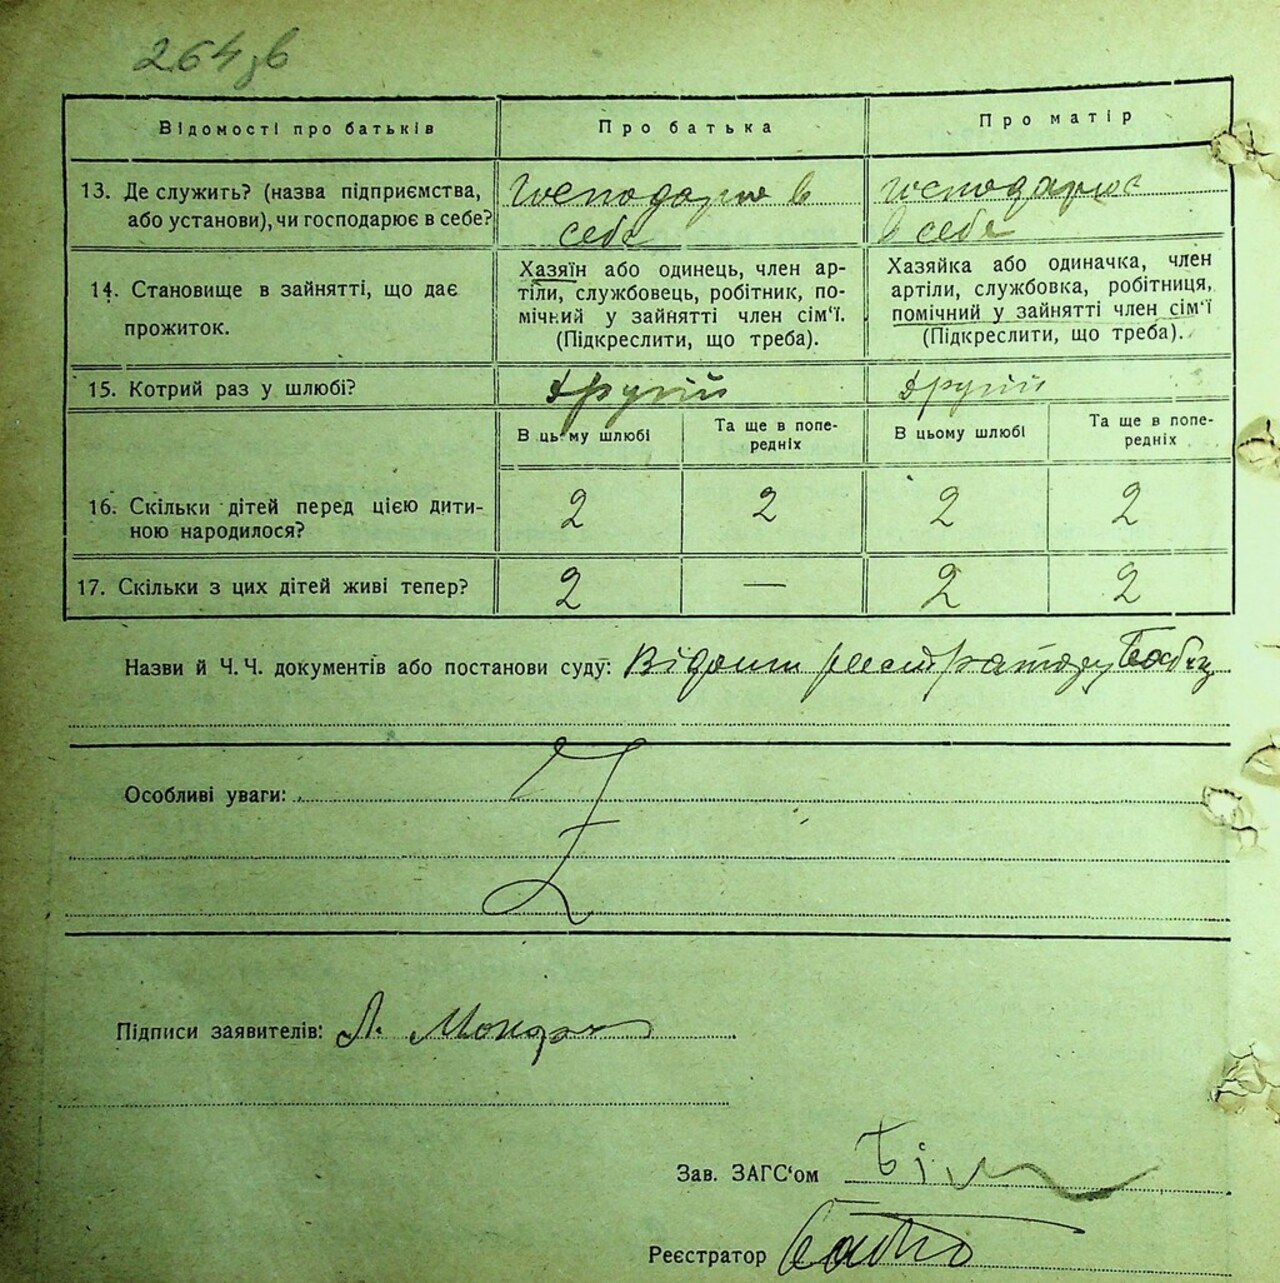 264 зв
Відомості про батьків
Про батька
Про матір
13. Де служить? (назва підприємства, або установи), чи господарює в себе?
господарює в
себе
господарює
в себе
14. Становище в зайнятті, що дає
прожиток.
Хазяїн або одинець, член ар-
тіли, службовець, робітник, по-
мічний у зайнятті член сім'ї.
(Підкреслити, що треба).
Хазяйка або одиначка, член
артіли, службовка, робітниця,
помічний у зайнятті член сім'ї
(Підкреслити, що треба).
15. Котрий раз у шлюбі?
другий
другий
В цьому шлюбі
Та ще в попе-
редніх
В цьому шлюбі
Та ще в попе-
редніх
16. Скільки дітей перед цією дити-
ною народилося?
2
2
2
2
17. Скільки з цих дітей живі тепер?
2
—
2
2
Назви й Ч. Ч. документів або постанови суду:
Особливі уваги:
Підписи заявителів:
Зав. ЗАГС'ом
Реєстратор